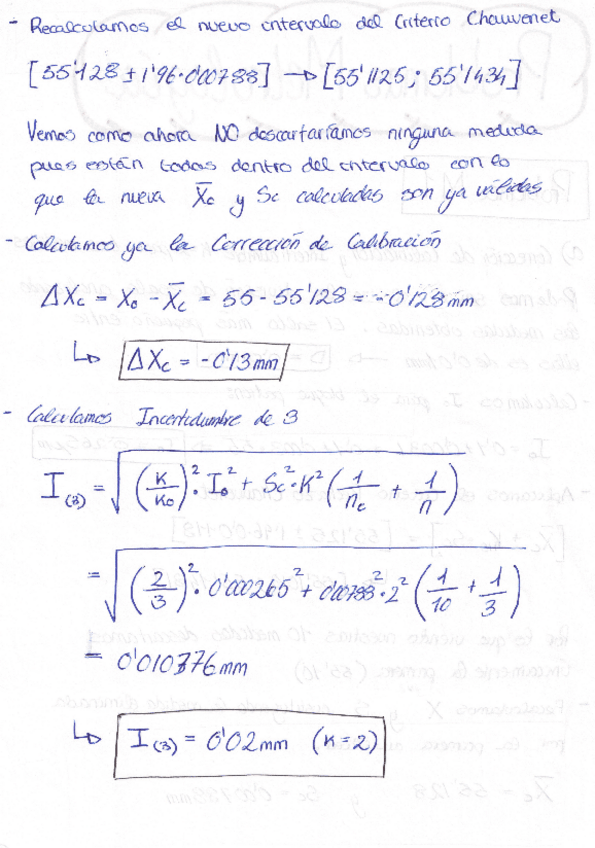 - Recalculamos el nuevo intervalo del Criterio Chauvenet
[55'128 ± 1'96·0'00788] → [55'1125 ; 55'1434]
Vemos como ahora NO descartaríamos ninguna medida
pues están todas dentro del intervalo con lo
que la nueva X̄c y Sc calculadas son ya válidas
- Calculamos ya la Corrección de Calibración
ΔXc = X₀ - X̄c = 55 - 55'128 = -0'128 mm
↳ ΔXc = -0'13 mm
- Calculamos Incertidumbre de 3
I(3) = √((K/K₀)²·I₀² + Sc²·K²(1/nc + 1/n))
= √((2/3)²·0'000265² + 0'00788²·2²(1/10 + 1/3))
= 0'010376 mm
↳ I(3) = 0'02 mm (K=2)